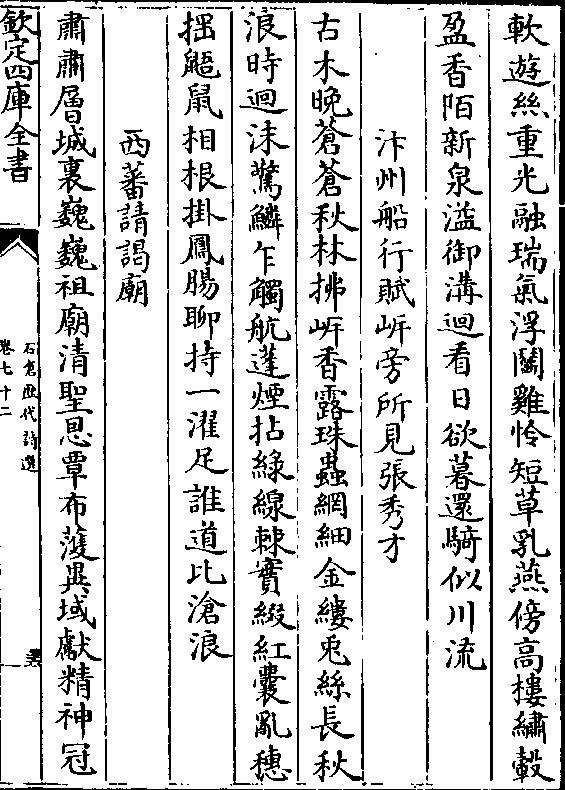 軟遊絲重光融瑞氣浮鬭雞怜短草乳燕傍高樓繡轂
盈香陌新泉溢御溝迴看日欲暮還騎似川流
汴州船行賦岍旁所見張秀才
古木晚蒼蒼秋林拂岍香露珠蟲網細金縷兎絲長秋
浪時迴沫驚鱗乍觸航蓬煙拈綠線棘實綴紅囊亂穗
搖鼯鼠相根掛鳳腸聊持一濯足誰道比滄浪
西蕃請謁廟
肅肅層城裏巍巍祖廟清聖恩覃布濩異域獻精神冠
欽定四庫全書
石倉歷代詩選
卷七十二